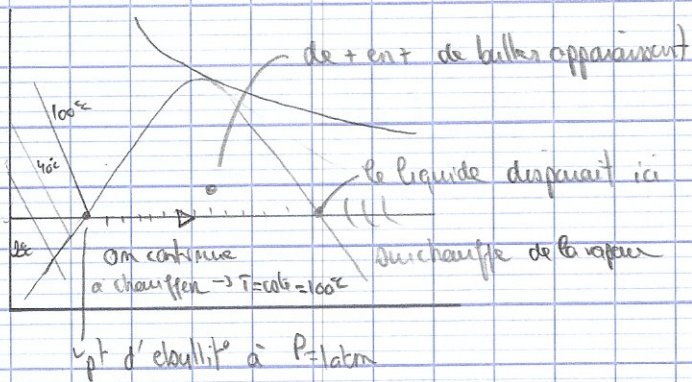 de + en + de bulles apparaissent
100°C
40°C
le liquide disparait ici
on continue
à chauffer → T=cste=100°C
surchauffe de la vapeur
pt d'ebullit° à P=1atm